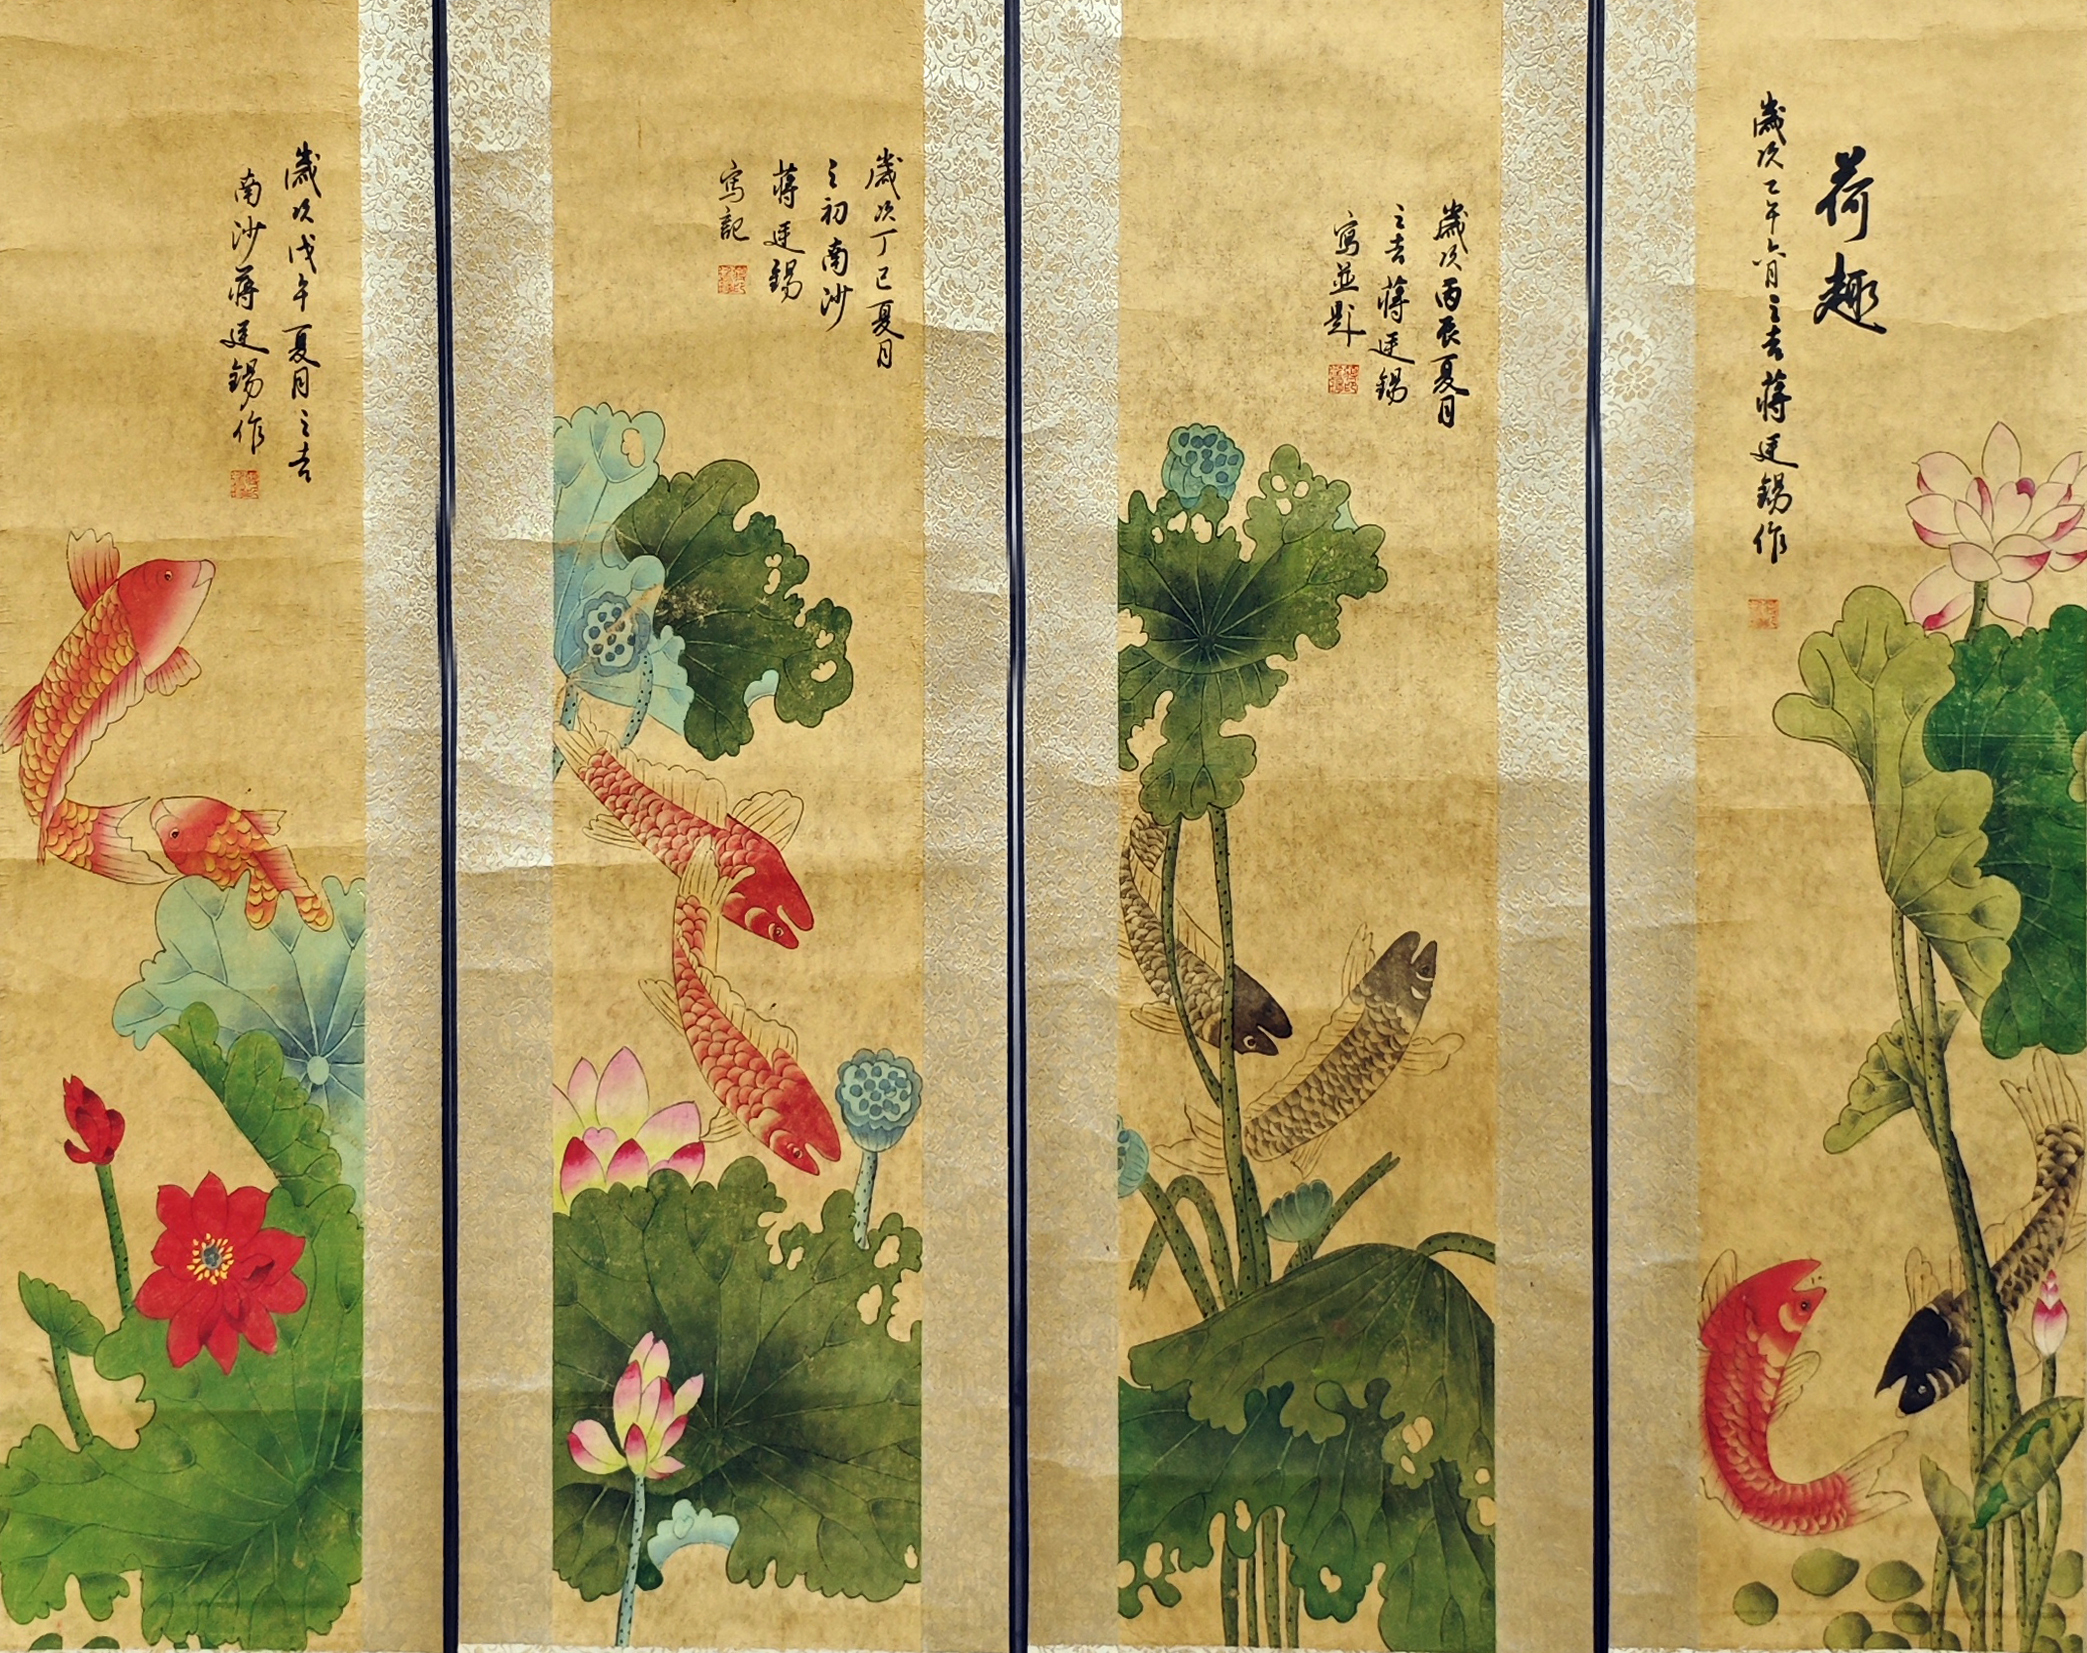 荷趣
歲次乙午六月之吉蔣廷錫作
歲次丙辰夏月
之吉蔣廷錫
寫並題
歲次丁巳夏月
之初南沙
蔣廷錫
寫記
歲次戊午夏月之吉
南沙蔣廷錫作